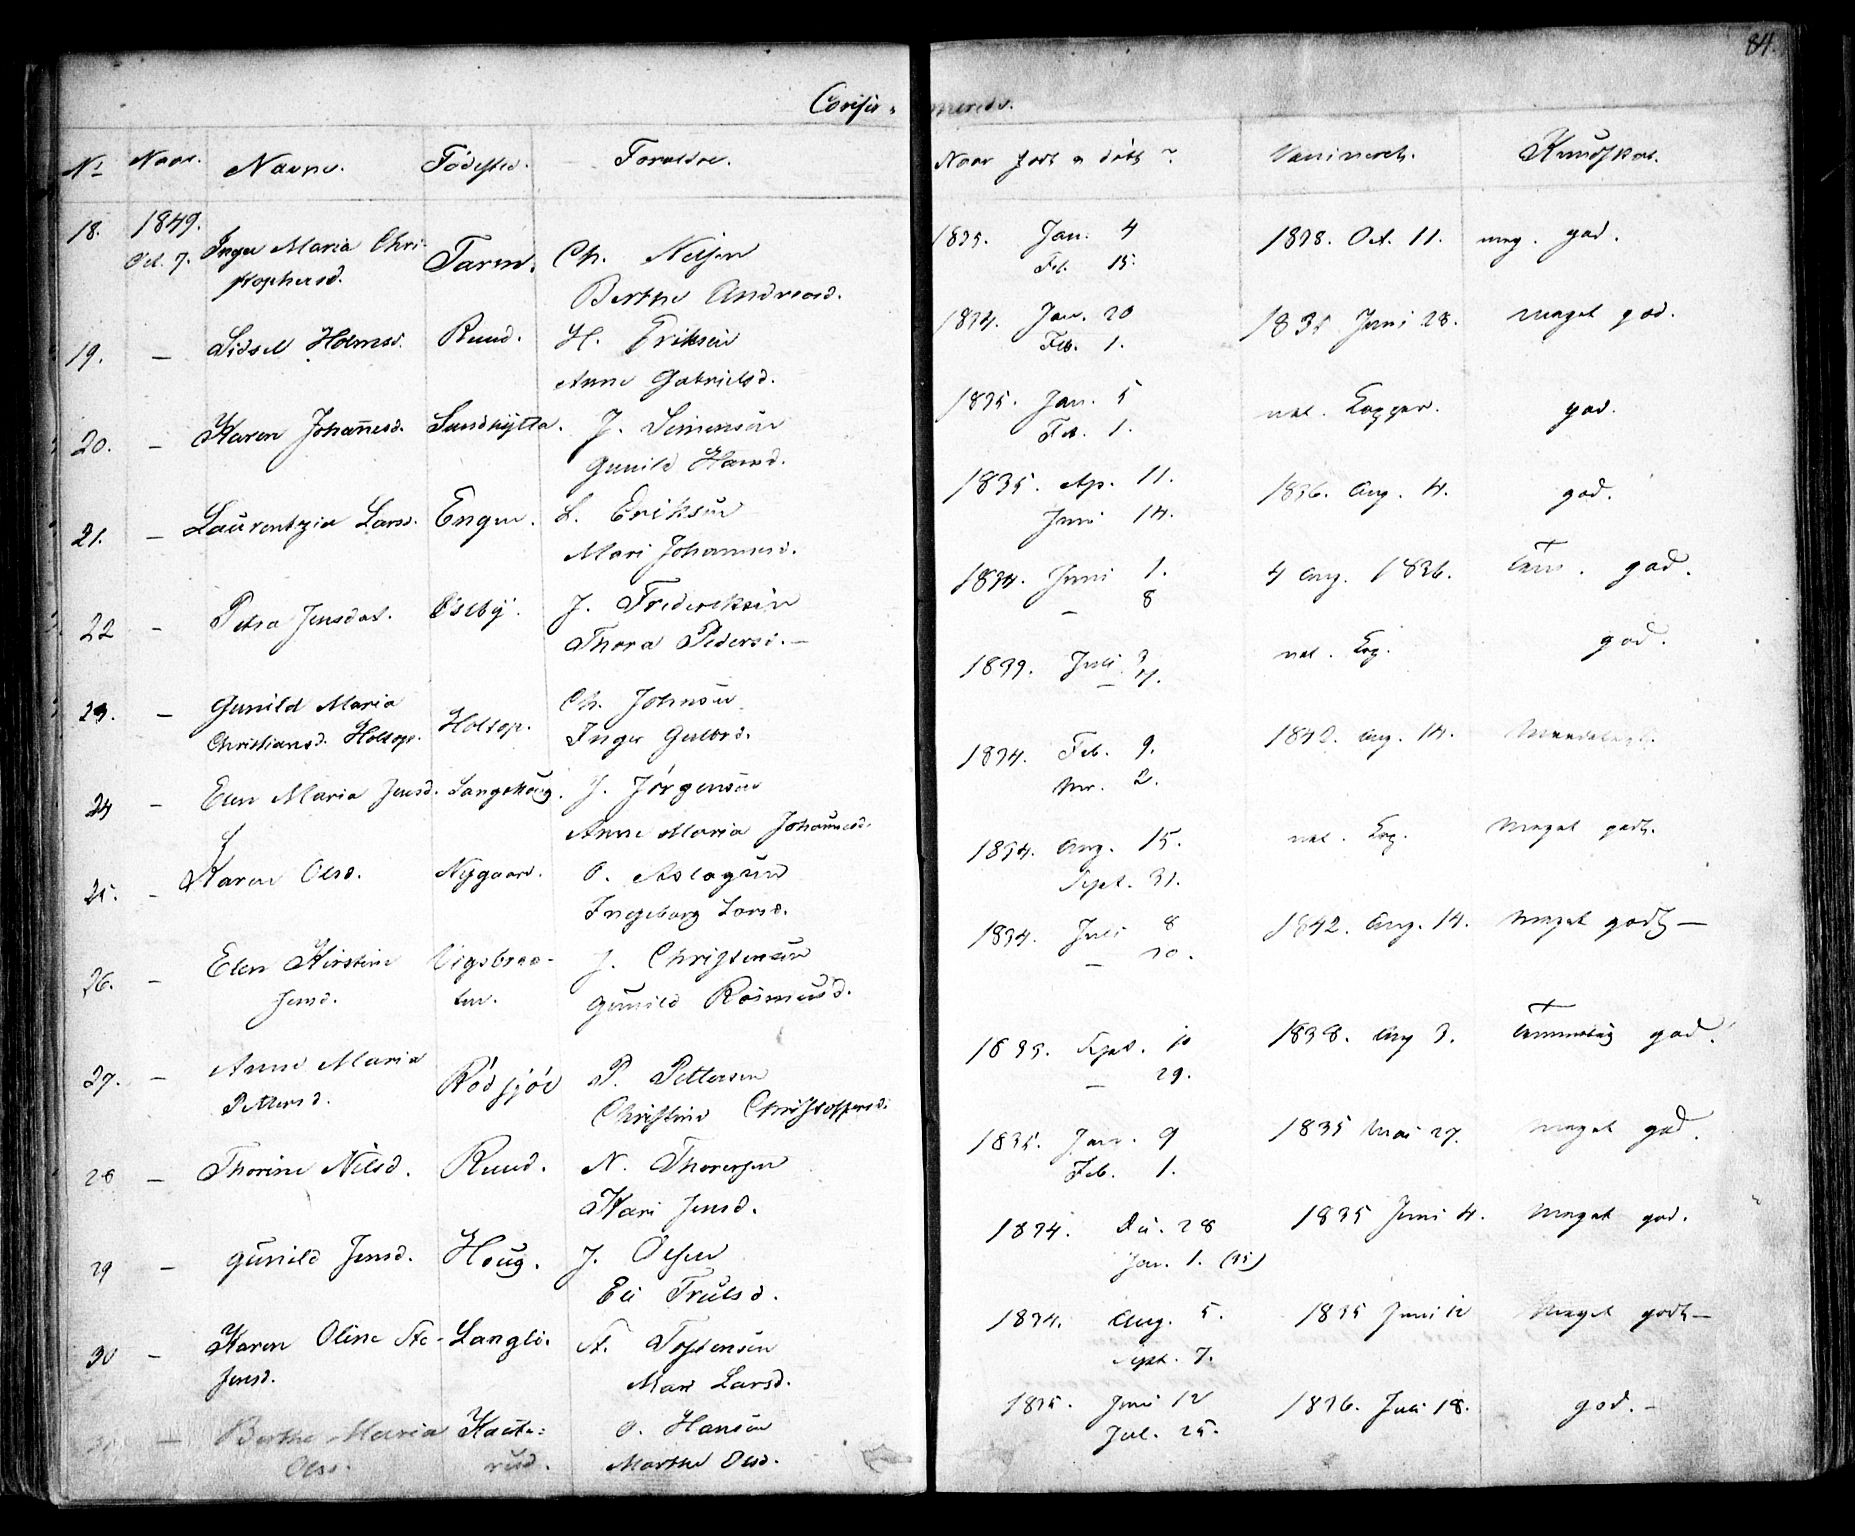 84.
Confir- merede.
No Naar. Navne. Födested. Forældre. Naar født og døbt? Vaccineret. Kundskab.
18. 1849. Oct. 7. Inger Maria Chri- Taren. Ch. Nilsen 1835. Jan. 4 1838. Oct. 11. meg. god.
stophersd. Berthe Andreasd. Feb. 15.
19. — Sidsel Holmsd. Ruud. H. Eriksen 1834. Jan. 20 1835 Juni 28. meget god.
Anne Gabrielsd. Feb. 1.
20. — Karen Johannesd. Sandhytta. J. Simensen 1835. Jan. 5 nat. Kopper. god.
Gunild Hansd. Feb. 1.
21. — Laurentzia Larsd. Enger. L. Eriksen 1835. Ap. 11. 1836. Aug. 4. god.
Mari Johannesd. Juni 14.
22 — Petra Jensdat. Öseby. J. Frederiksen 1834. Juni 1. 4 Aug. 1836. god.
Thora Pedersd. — — 8
23. — Gunild Maria Holtop. Ch. Johnsen 1833. Juli 3 nat. Kop. god.
Christiansd. Holtop. Inger Gulbrd. — 7.
24 — Elen Maria Jensd. Langehoug. J. Jörgensen 1834. Feb. 9. 1842. Aug. 14.
Anne Maria Johannesd. Mr. 2.
25. — Karen Olsd. Nygaard. O. Aslagsen 1834. Aug. 15. nat. Kop. Meget godt.
Ingeborg Larsd. Sept. 31.
26. — Elen Kirstine Vigsbraa- J. Christensen 1834. Juli 8 1842. Aug. 14. Meget godt —
Jensd. ten. Gunild Rasmusd. — 20.
27. — Anne Maria Rödsjöe P. Pettersen 1835. Sept. 10 1838. Aug 3. god.
Pettersd. Christine Christoffersd. — 29.
28 — Thorine Nilsd. Ruud. N. Thoresen 1835. Jan. 9 1835 Mai 27. meget god.
Kari Jensd. Feb. 1.
29 — Gunild Jensd. Houg. J. Olsen 1834. De. 28 1835 Juni 4. Meget god.
Eli Trulsd. Jan. 1. (35)
30 — Karen Oline Ste- Langli. St. Tostensen 1834. Aug. 5. 1835 Juni 12 Meget godt —
fensd. Mari Larsd. Sept. 7.
31 — Berthe Maria Kaate- O. Hansen 1835. Juni 12 1836. Juli 18. god. —
Olsd. rud. Marthe Olsd. Jul. 25.